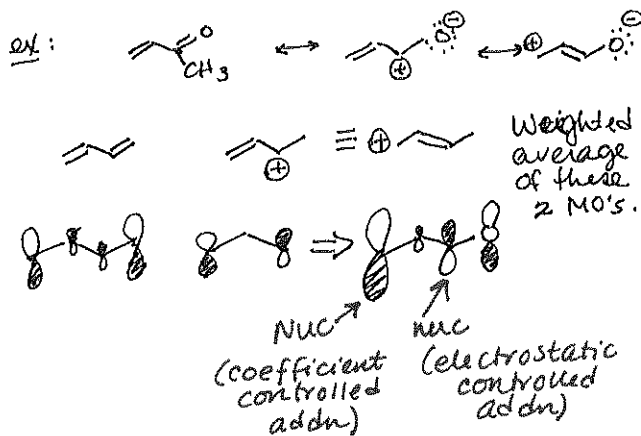 ex:
O
CH3
↔
⊕
O
⊖
↔
⊕
O
⊖
⊕
≡
⊕
Weighted
average
of these
2 MO's.
⇒
Nuc
nuc
(coefficient
controlled
addn)
(electrostatic
controlled
addn)